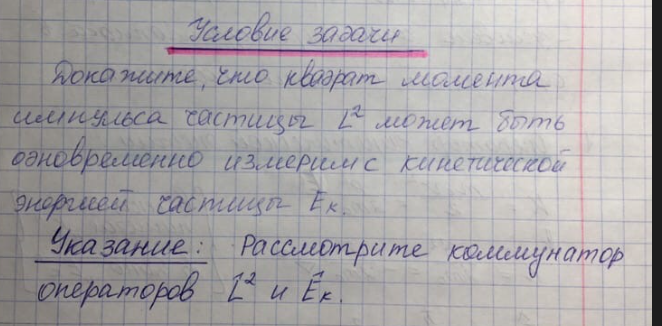 Условие задачи
Докажите, что квадрат момента
импульса частицы L² может быть
одновременно измерим с кинетической
энергией частицы Eк.
Указание: Рассмотрите коммунатор
операторов L̂² и Êк.